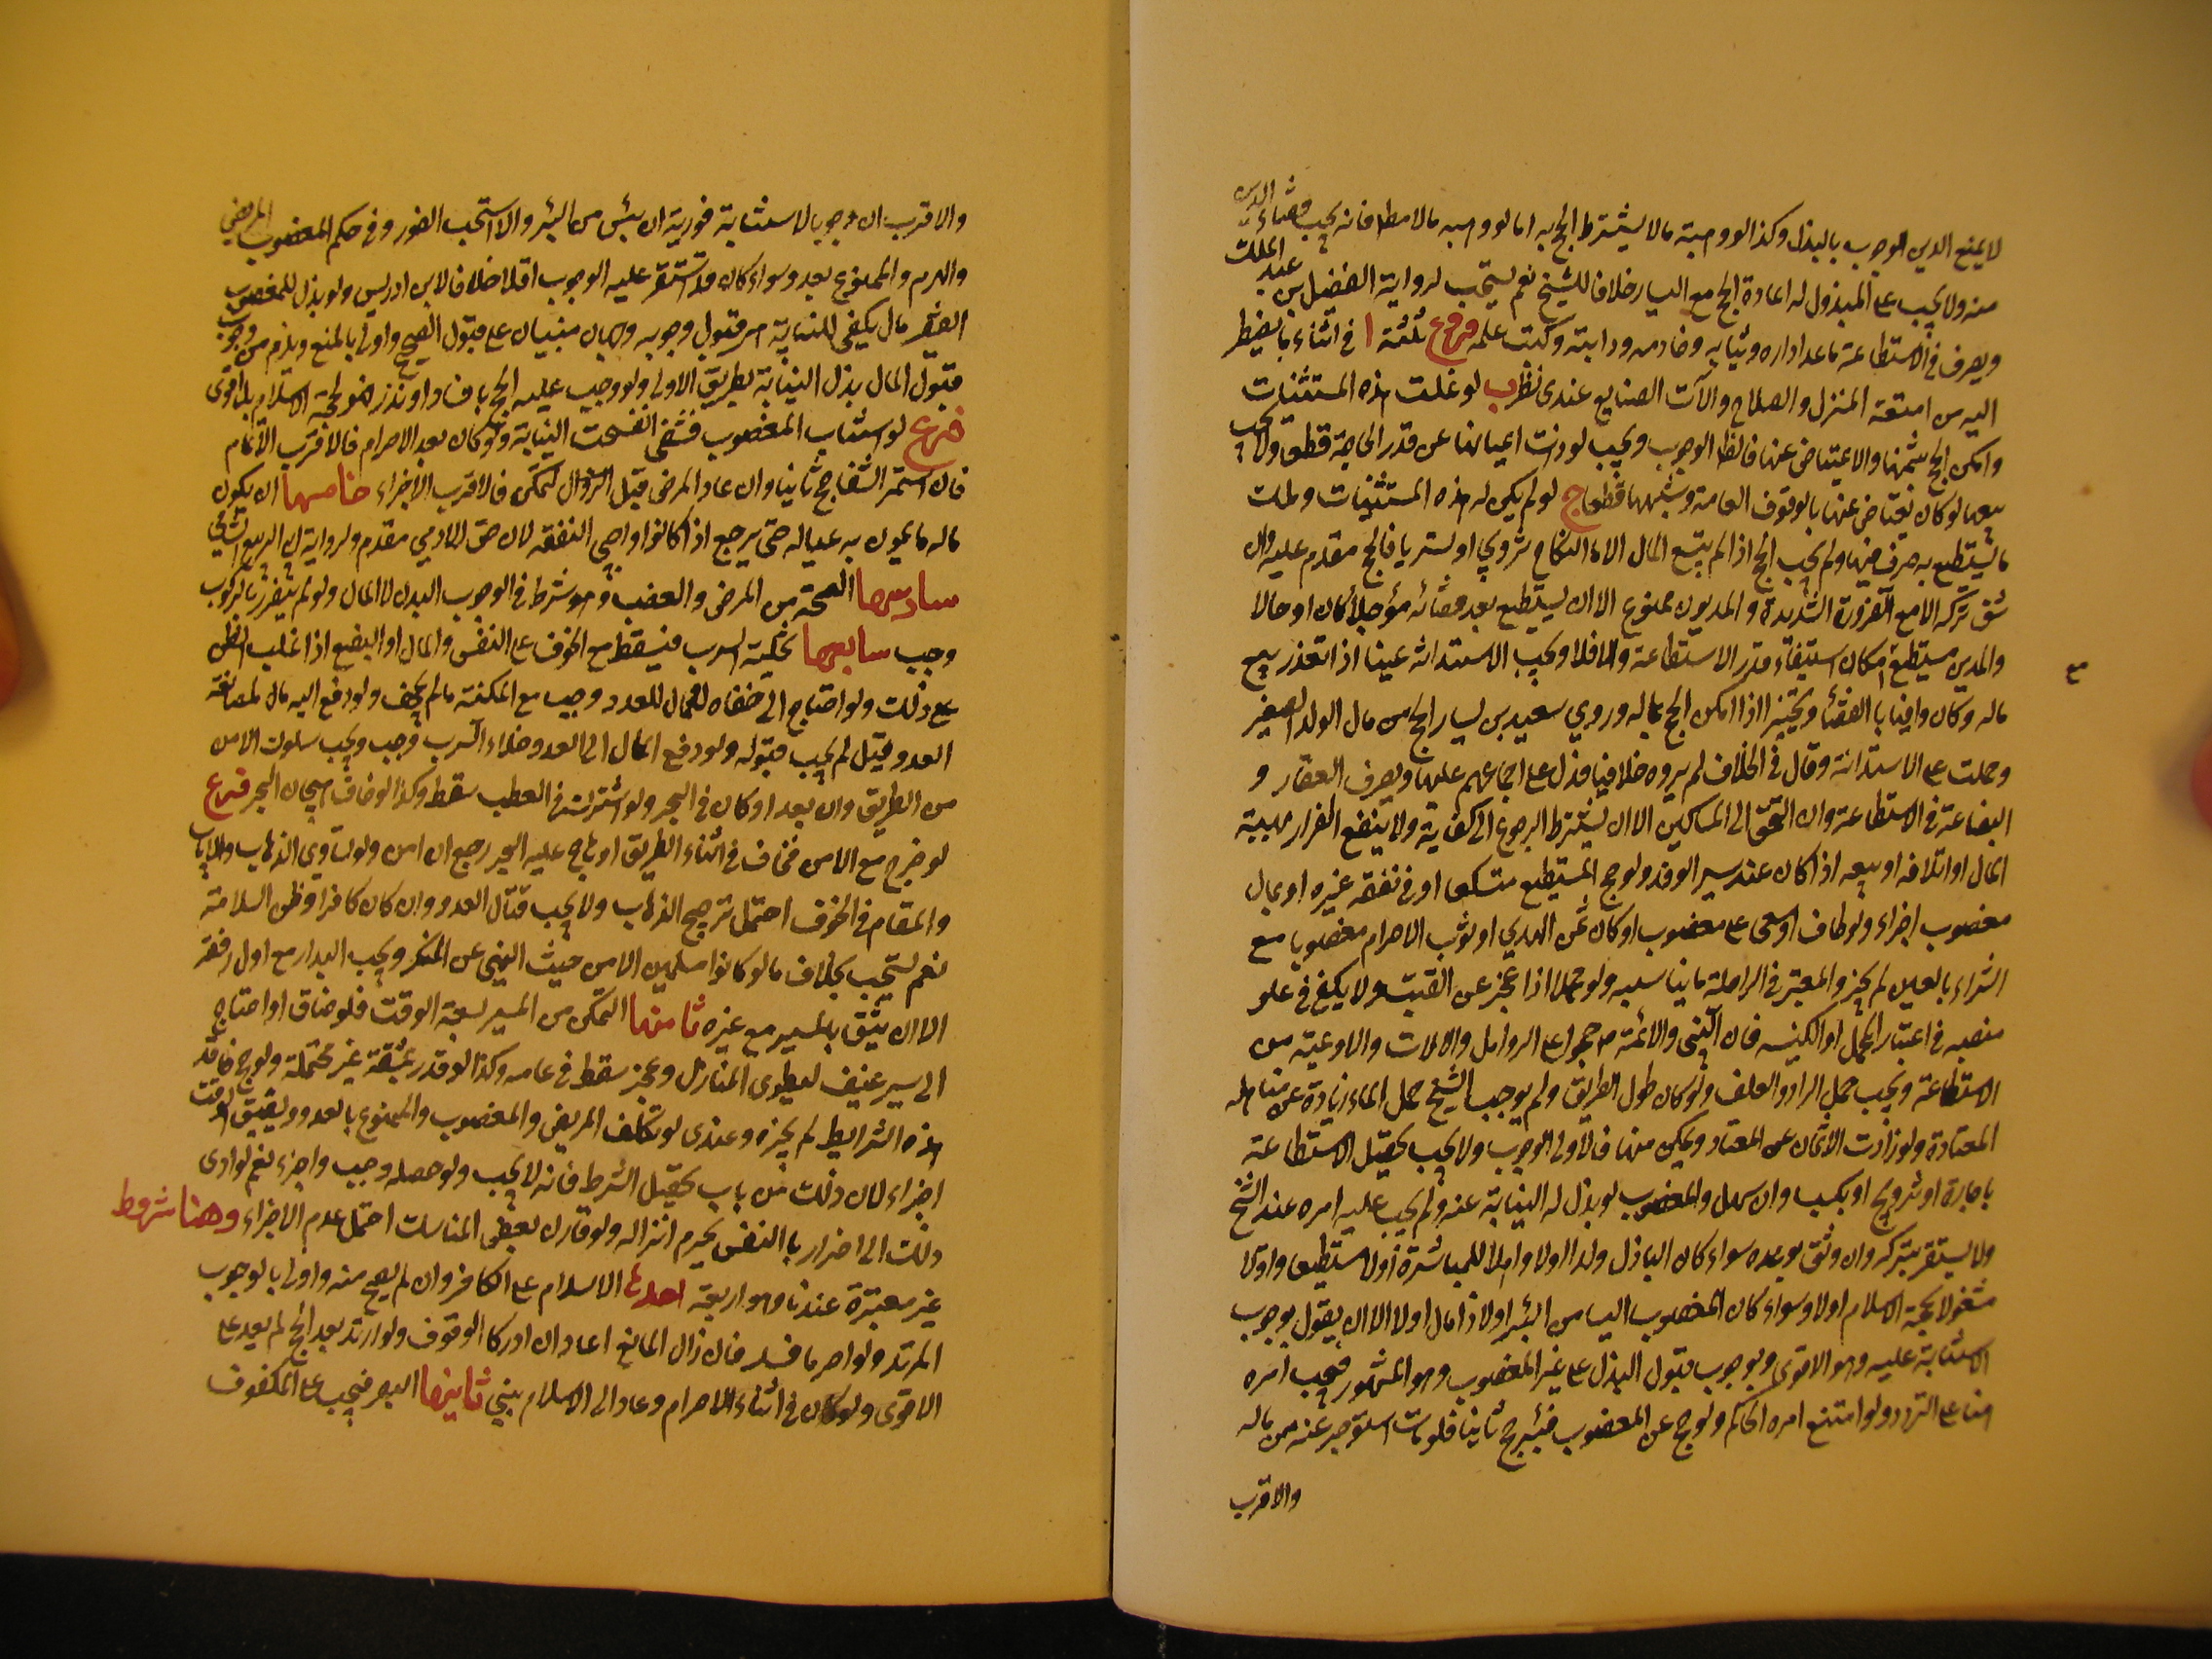 لا يمنع الدين الوجوب بالبذل وكذا لو وهبه مالا يشترط الحج به اما لو وهبه مالا مطلقا فانه يجب قضاء الدين
منه ولا يجب على المبذول له اعادة الحج مع اليسار خلافا للشيخ نعم يستحب لرواية الفضل بن عبد الملك
ويصرف في الاستطاعة ما عدا داره وثيابه وخادمه ودابته وكتب علمه فروع ثلثة ا في استثناء ما يضطر
اليه من امتعة المنزل والسلاح والآت الصنايع عندي نظر ب لو غلت هذه المستثنيات
وامكن الحج بثمنها والاعتياض عنها فالظ الوجوب ويجب لو زادت اعيانها عن قدر الحاجة قطعا ولا يجب
بيعها لو كان يعتاض عنها بالوقوف العامة وشبهها قطعا ج لو لم يكن له هذه المستثنيات وملك
ما يستطيع به صرف فيها ولم يجب الحج اذا لم يتسع المال الا اما النكاح تزويجا او تسريا فالحج مقدم عليه وان
شق تركه الا مع الضرورة الشديدة والمديون ممنوع الا ان يستطيع بعد قضائه مؤجلا كان او حالا
والمدين مستطيع مع امكان استيفاء قدر الاستطاعة والا فلا ويجب الاستدانة عينا اذا تعذر بيع
ماله وكان وافيا بالقضاء ويتخير اذا امكن الحج بماله وروي سعيد بن يسار الحج من مال الولد الصغير
وحملت على الاستدانة وقال في الخلاف لم يروه خلافنا فدل على اجماعهم عليها ويصرف العقار و
البضاعة في الاستطاعة وان التحق الى المساكين الا ان يشترط الرجوع الى كفاية ولا ينفع الفرار بهبة
المال او اتلافه او بيعه اذا كان عند سير الوفد ولو حج المستطيع متسكعا او في نفقة غيره او بمال
مغصوب اجزاء ولو طاف او سعى على مغصوب او كان ثمن الهدي او ثوب الاحرام مغصوبا مع
الشراء بالعين لم يجز والمعتبر في الراحلة ما يناسبه ولو محملا اذا عجز عن القتب ولا يكفي في علو
منصبه في اعتبار المحمل او الكنيسه فان النبي والائمة ع حجوا على الزوامل والالات والاوعية من
الاستطاعة ويجب حمل الزاد والعلف ولو كان طول الطريق ولم يوجب الشيخ حمل الماء زيادة عن مناهله
المعتادة ولو زادت الاثمان عن المعتاد ويمكن منها فالاولى الوجوب ولا يجب تحصيل الاستطاعة
باجارة او تزويج او تكسب وان سهل والمعضوب لو بذل له النيابة عنه لم يجب عليه امره عند الشيخ
ولا يستقر بتركه وان وثق بوعده سواء كان الباذل ولدا او لا واهلا للمباشرة او لا مستطيعا او لا
مشغولا بحجة الاسلام او لا وسواء كان المعضوب آيسا من البرء او لا ذا مال او لا الا ان يقول بوجوب
الاستنابة عليه وهو الاقوى وبوجوب قبول البذل على غير المعضوب وهو المشهور فيجب امره
هنا على التردد ولو امتنع امره الحاكم ولو حج عن المعضوب فبرئ حج ثانيا فلو مات استوجر عنه من ماله
والاقرب
والاقرب ان وجوب الاستنابة فورية ان يئس من البرء والا استحب الفور وفي حكم المعضوب المريض
والهرم والممنوع بعدو سواء كان قد استقر عليه الوجوب او لا خلافا لابن ادريس ولو بذل للمعضوب
الفقير مال يكفي للنيابة ففي قبول وجوبه وجهان مبنيان على قبول الصحيح واولى بالمنع ويلزم من وجوب
قبول المال بذل النيابة بطريق الاولى ولو وجب عليه الحج بافساد او نذر فهو كحجة الاسلام بل اقوى
فرع لو استناب المعضوب فشفي انفسخت النيابة ولو كان بعد الاحرام فالاقرب الاتمام
فان استمر الشفا حج ثانيا وان عاد المرض قبل الزوال تمكن فالاقرب الاجزاء خامسها ان يكون
ماله ما يمون به عياله حتى يرجع اذا كانوا واجبي النفقه لان حق الادمي مقدم ولرواية ابي الربيع الشامي
سادسها الصحة من المرض والعضب وهو شرط في الوجوب البدن لا المال ولو لم يتضرر بالركوب
وجب سابعها تخلية السرب فيسقط مع الخوف على النفس والمال او البضع اذا غلب الظن
مع ذلك ولو احتاج الى خفارة لمال للعدو وجب مع المكنة ما لم يجحف ولو دفع اليه مال لمصانعة
العدو قيل لم يجب قبوله ولو دفع المال الى العدو وخلاء السرب وجب ويجب سلوك الامن
من الطريق وان بعد او كان في البحر ولو اشتركت في العطب سقط وكذا لو خاف هيجان البحر فرع
لو خرج مع الامن فخاف في اثناء الطريق او هاج عليه البحر رجع ان امن ولو تساوى الذهاب والاياب
والمقام في الخوف احتمل ترجيح الذهاب ولا يجب قتال العدو وان كان كافرا وظن السلامة
نعم يستحب بخلاف ما لو كانوا مسلمين الا من حيث النهي عن المنكر ويجب البدار مع اول رفقه
الا ان يثق بالمسير مع غيره ثامنها التمكن من المسير لسعة الوقت فلو ضاق او احتاج
الى سير عنيف ليطوى المنازل وعجز سقط في عامه وكذا لو قدر بمشقة غير محتملة ولو حج فاقد
هذه الشرايط لم يجزه وعندي لو تكلف المريض والمعضوب والممنوع بالعدو وبضيق الوقت
اجزاء لان ذلك من باب تحصيل الشرط فانه لا يجب ولو حصله وجب واجزاء نعم لو ادى
ذلك الى اضرار بالنفس يحرم انزاله ولو قارن بعض المناسك احتمل عدم الاجزاء وهنا شروط
غير معتبرة عندنا وهو اربعة احدها الاسلام على الكافر وان لم يصح منه واولى بالوجوب
المرتد ولو احرما فسد فان زال المانع اعاد ان ادركا الوقوف ولو ارتد بعد الحج لم يعد على
الاقوى ولو كان في اثناء الاحرام وعاد الى الاسلام بنى ثانيها البصر فيجب على المكفوف